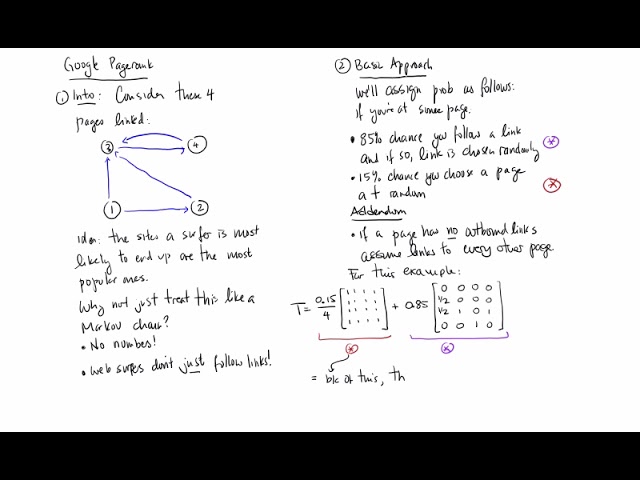 Google Pagerank
① Intro: Consider these 4
pages linked:
3 4
1 2
Idea: the sites a surfer is most
likely to end up are the most
popular ones.
Why not just treat this like a
Markov chain?
• No numbers!
• Web surfers don't just follow links!
② Basic Approach
We'll assign prob as follows:
if you're at some page.
• 85% chance you follow a link
and if so, link is chosen randomly *
• 15% chance you choose a page
at random *
Addendum
• if a page has no outbound links
assume links to every other page
For this example:
T = 0.15/4 [ 1 1 1 1 ; 1 1 1 1 ; 1 1 1 1 ; 1 1 1 1 ] + 0.85 [ 0 0 0 0 ; 1/2 0 0 0 ; 1/2 1 0 1 ; 0 0 1 0 ]
* *
= b/c of this, Th